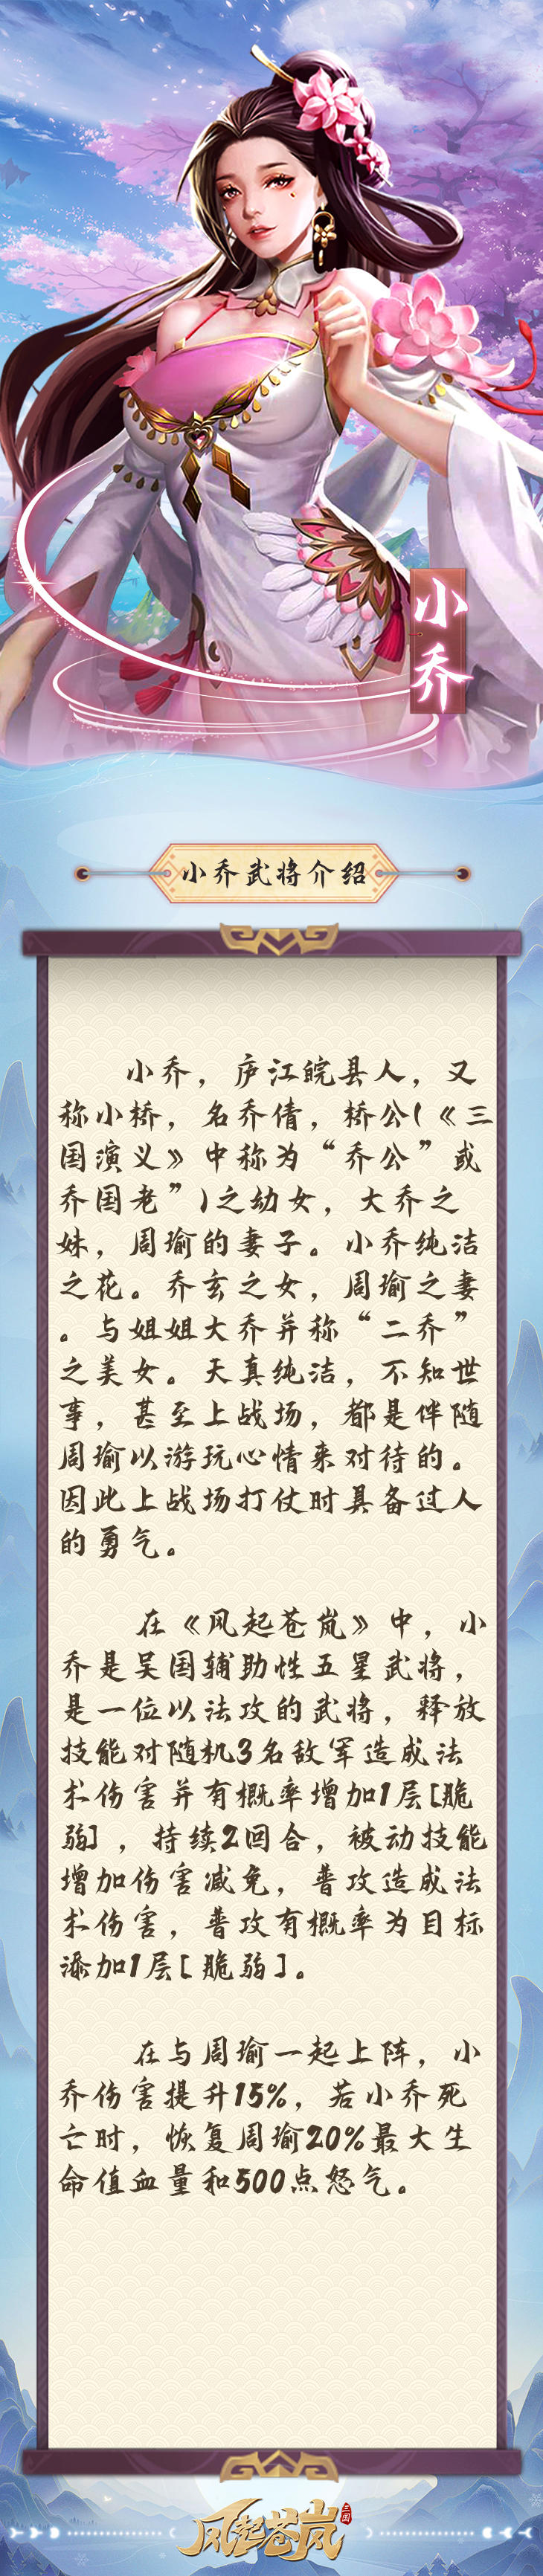 小乔
小乔武将介绍
小乔，庐江皖县人，又
称小桥，名乔倩，桥公(《三
国演义》中称为“乔公”或
乔国老”)之幼女，大乔之
妹，周瑜的妻子。小乔纯洁
之花。乔玄之女，周瑜之妻
。与姐姐大乔并称“二乔”
之美女。天真纯洁，不知世
事，甚至上战场，都是伴随
周瑜以游玩心情来对待的。
因此上战场打仗时具备过人
的勇气。
在《风起苍岚》中，小
乔是吴国辅助性五星武将，
是一位以法攻的武将，释放
技能对随机3名敌军造成法
术伤害并有概率增加1层[脆
弱]，持续2回合，被动技能
增加伤害减免，普攻造成法
术伤害，普攻有概率为目标
添加1层[脆弱]。
在与周瑜一起上阵，小
乔伤害提升15%，若小乔死
亡时，恢复周瑜20%最大生
命值血量和500点怒气。
风起苍岚
三国